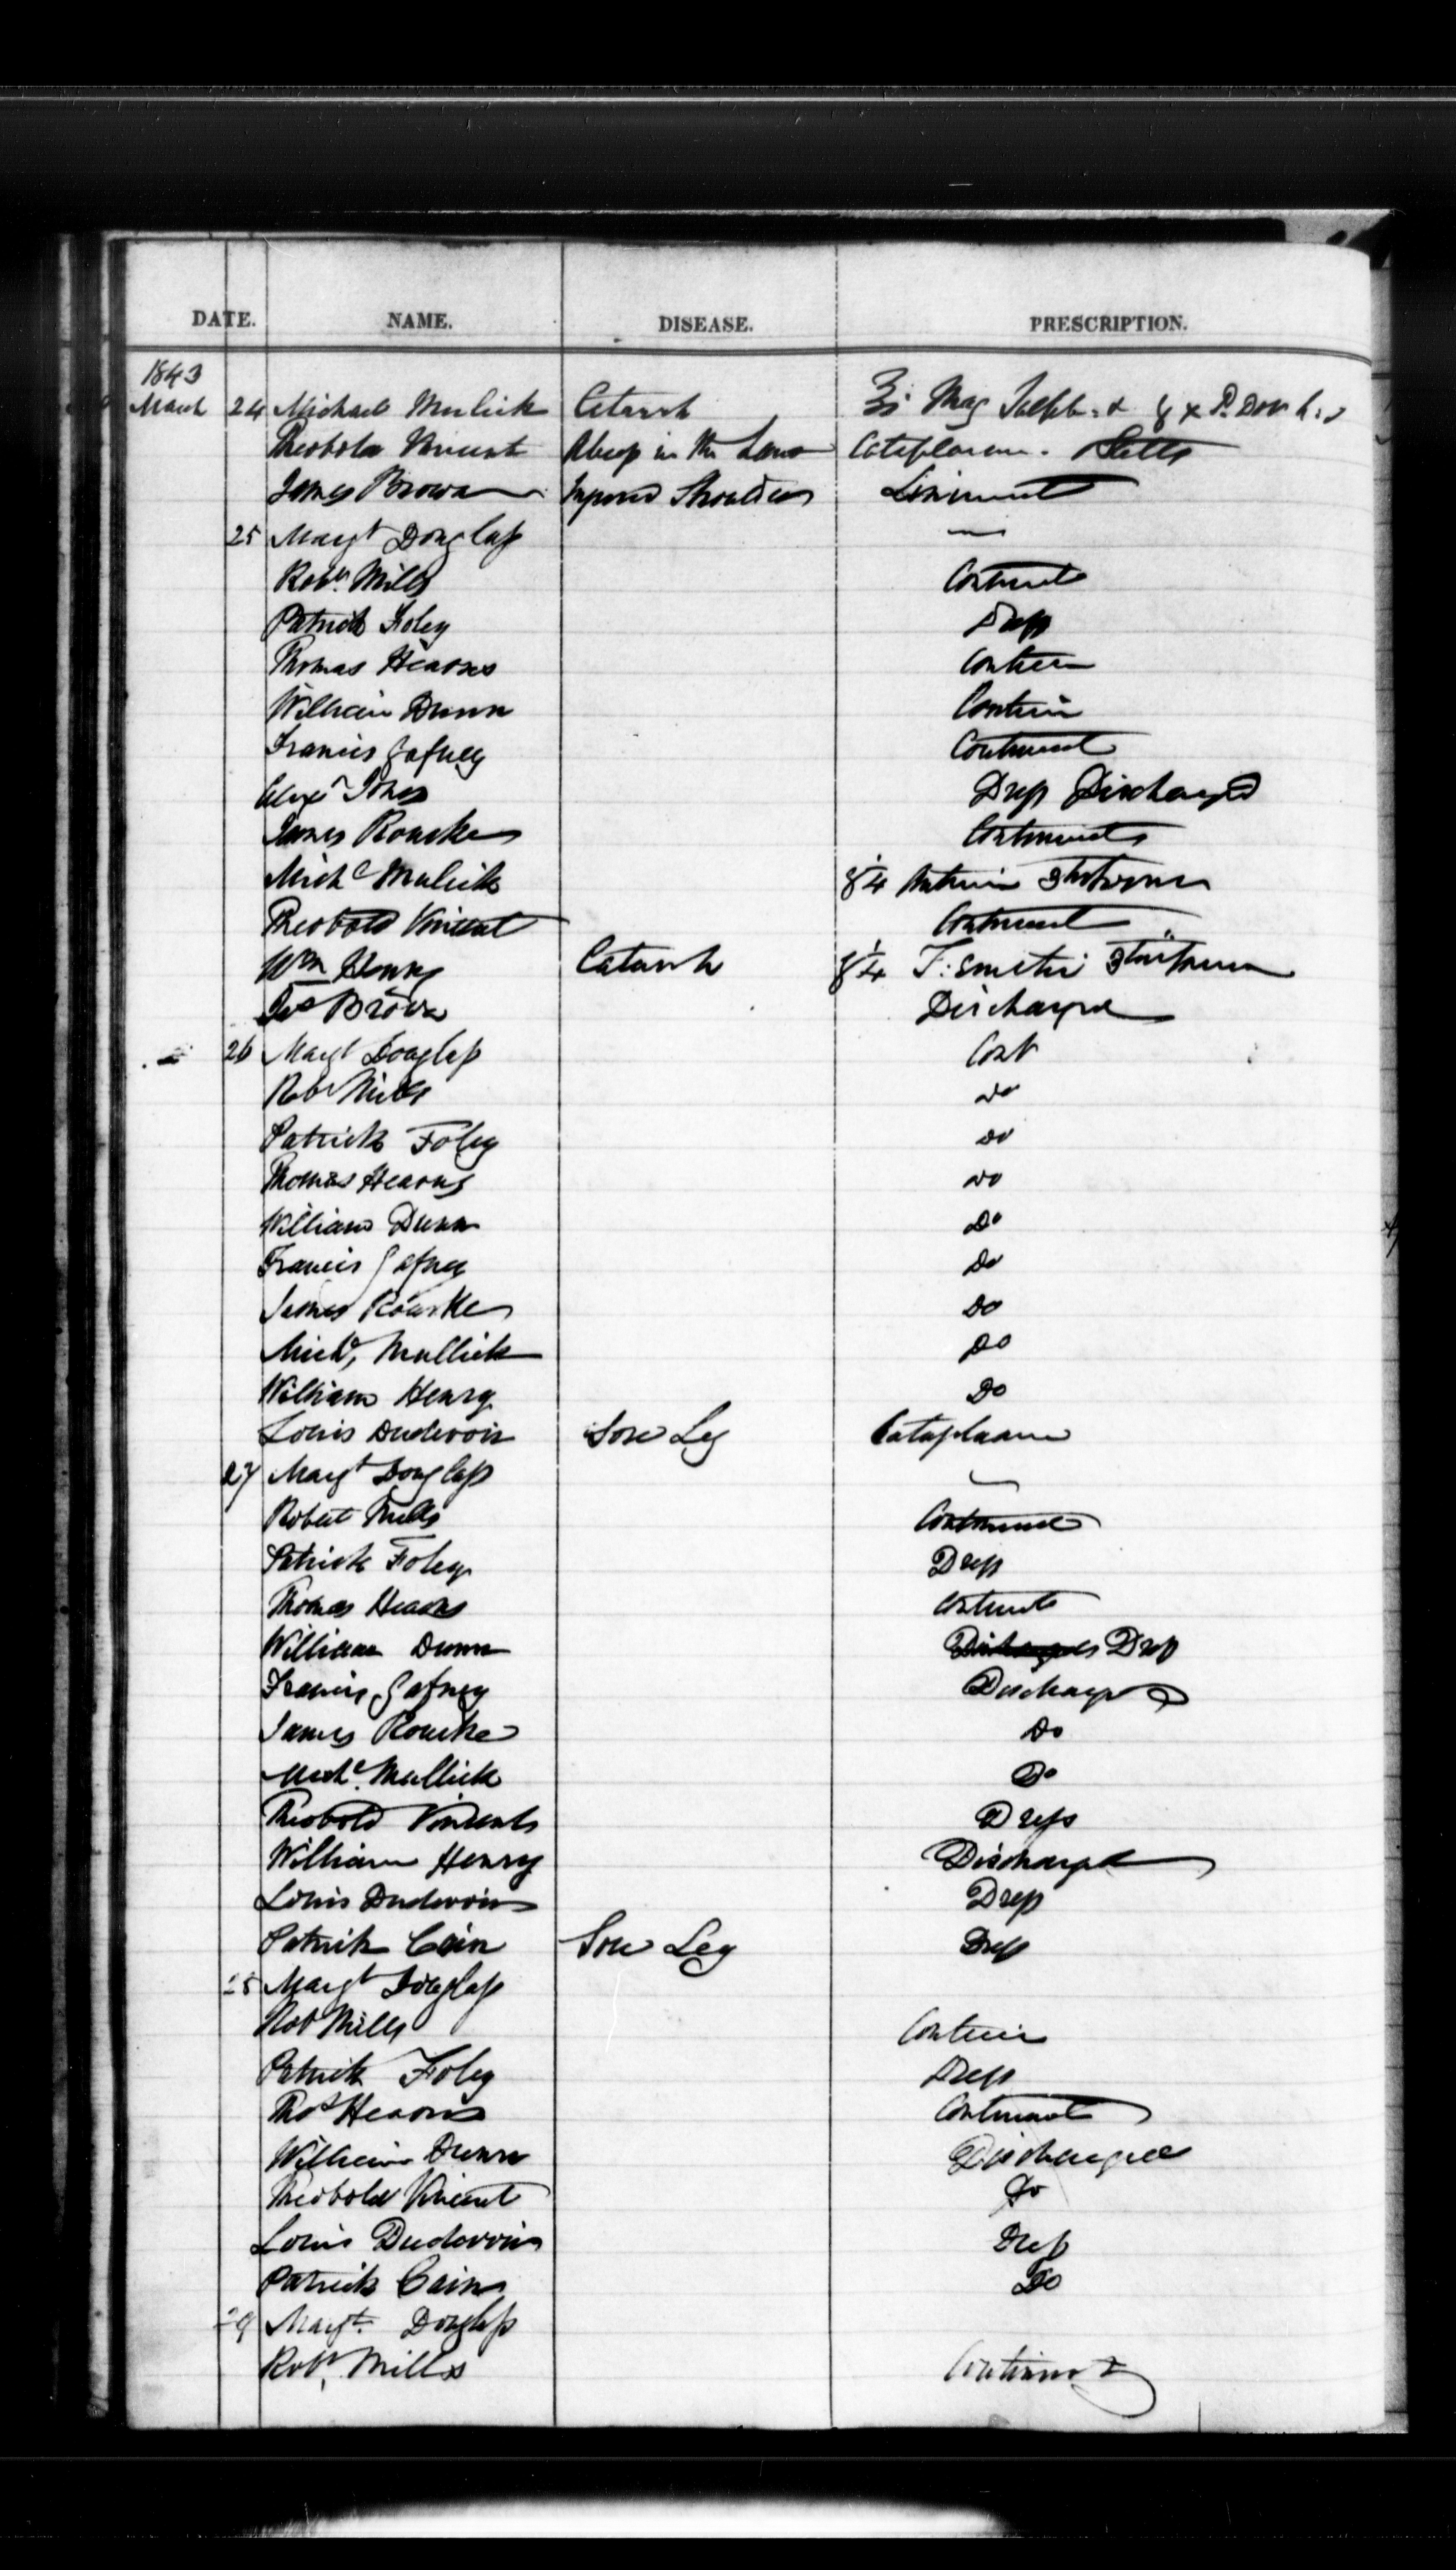 DATE. NAME. DISEASE. PRESCRIPTION.
1843
March 24 Michael Mulick Catarrh ʒi Mag Sulph: &
Theobold Vincent in the Cataplasm. Salts
James Brown Injured Shoulder Liniment
25 Margt Douglass —
Robt. Mills Continued
Patrick Foley Dress
Thomas Hearns Contin
William Dunn Contin
Francis Gafney Continued
Alexr Jones Dress Discharged
James Rourke Continued
Michl Mulick
Theobold Vincent Continued
Wm Henry Catarrh
Jas Brown Discharged
26 Margt Douglass Cont
Robt Mills Do
Patrick Foley Do
Thomas Hearns Do
William Dunn Do
Francis Gafney Do
James Rourke Do
Michl, Mullick Do
William Henry Do
Louis Dudevoir Sore Leg Cataplasm
27 Margt Douglass
Robert Mills Continued
Patrick Foley Dress
Thomas Hearns Continued
William Dunn Discharged Dress
Francis Gafney Discharged
James Rourke Do
Michl. Mullick Do
Theobold Vincent Dress
William Henry Discharged
Louis Dudevoir Dress
Patrick Cain Sore Leg Dress
28 Margt Douglass
Robt Mills Contin
Patrick Foley Dress
Thos Hearns Continued
William Dunn Discharged
Theobold Vincent Do
Louis Dudevoir Dress
Patrick Cain Do
29 Margt. Douglass
Robt. Mills Continued